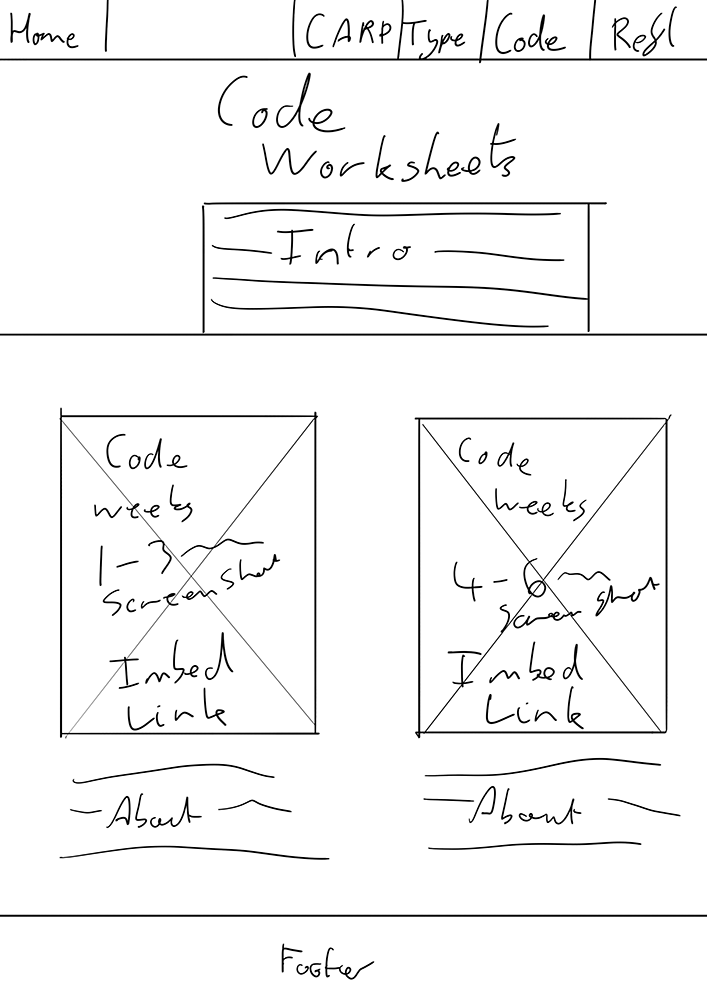 Home CARP Type Code Refl
Code
Worksheets
Intro
Code
weeks
1-3
Screen Shot
Imbed
Link
Code
weeks
4-6
Screen Shot
Imbed
Link
About
About
Footer